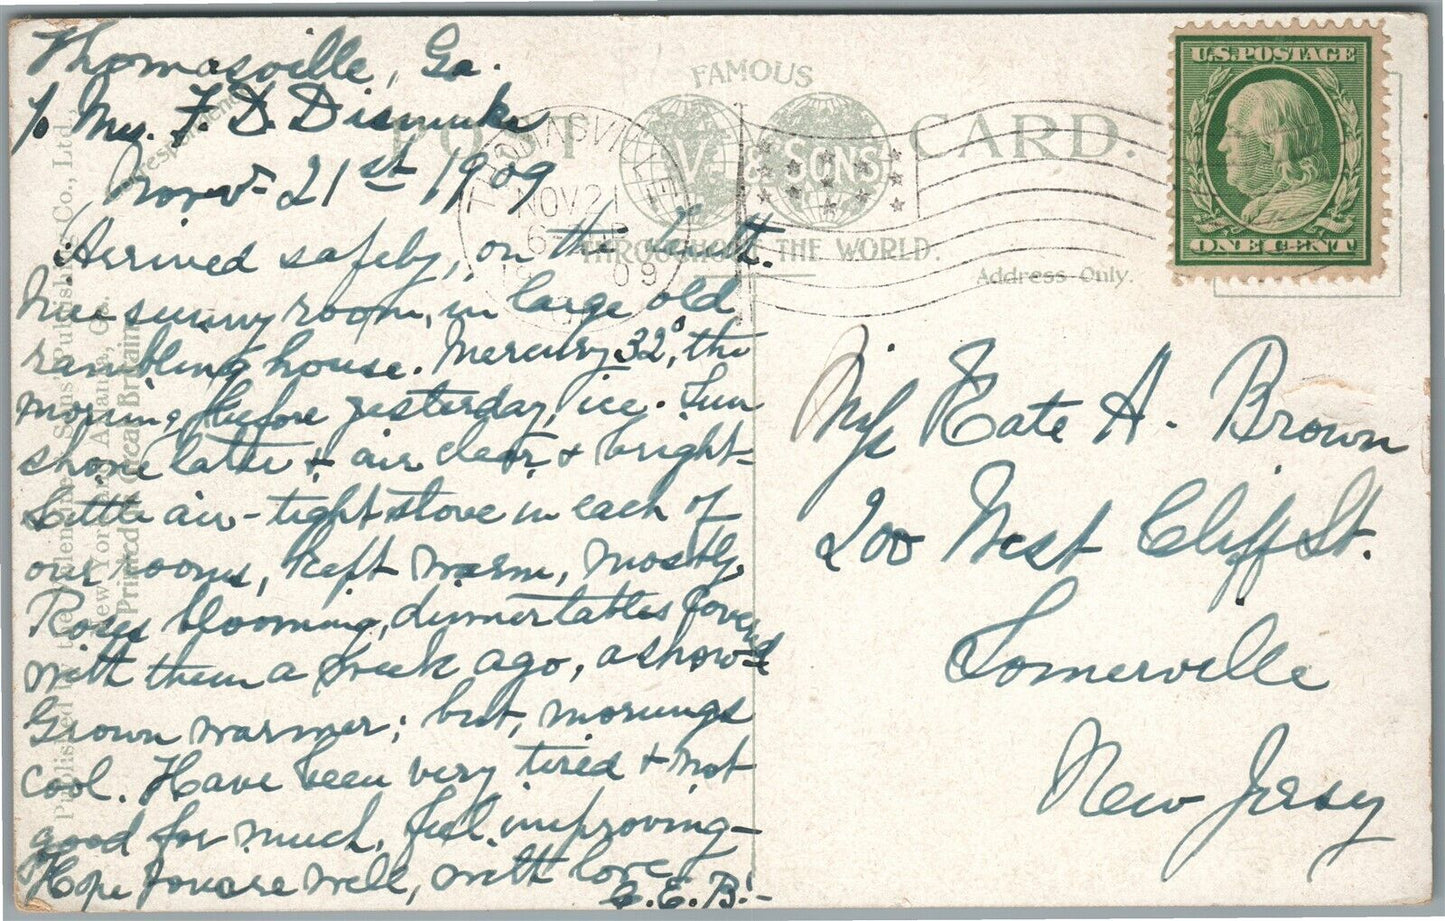 Thomasville, Ga.
℅ Mrs. F. D. Dismuke
Nov. 21st 1909
Arrived safely, on the
Nice sunny room, in large old
rambling house. Mercury 32°, the
morning before yesterday, ice. Sun
shone later & air clear & bright-
Little air-tight stove in each of
our rooms, kept warm, mostly.
Roses blooming, dinner tables covered
with them a week ago, a show'd
Grown warmer; but, mornings
cool. Have been very tired & not
good for much, feel improving-
Hope you are well, with love,
G. E. B.-
Correspondence
Published by the Valentine & Sons' Publishing Co., Ltd.,
New York and Atlanta, Ga.
Printed in Great Britain
FAMOUS
POST CARD.
V. & SONS
THROUGHOUT THE WORLD.
Address Only.
THOMASVILLE
NOV 21
6
1909
U.S. POSTAGE
ONE CENT
Miss Kate A. Brown
200 West Cliff St.
Somerville
New Jersey